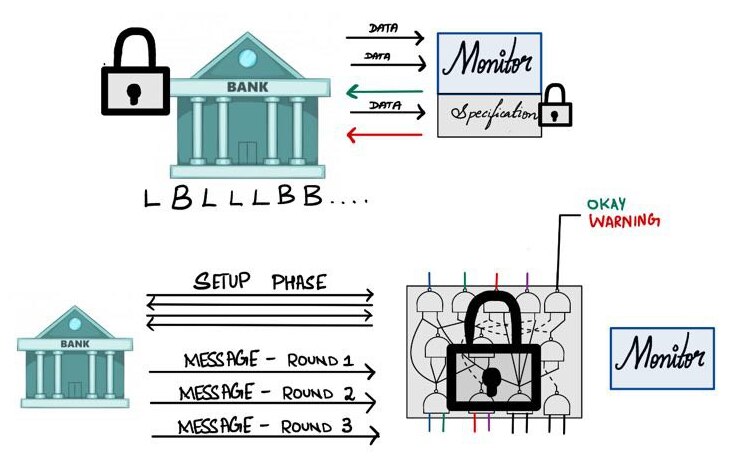 DATA
DATA
Monitor
BANK
DATA
Specification
L B L L L B B ....
OKAY
WARNING
SETUP PHASE
BANK
MESSAGE - ROUND 1
MESSAGE - ROUND 2
MESSAGE - ROUND 3
Monitor